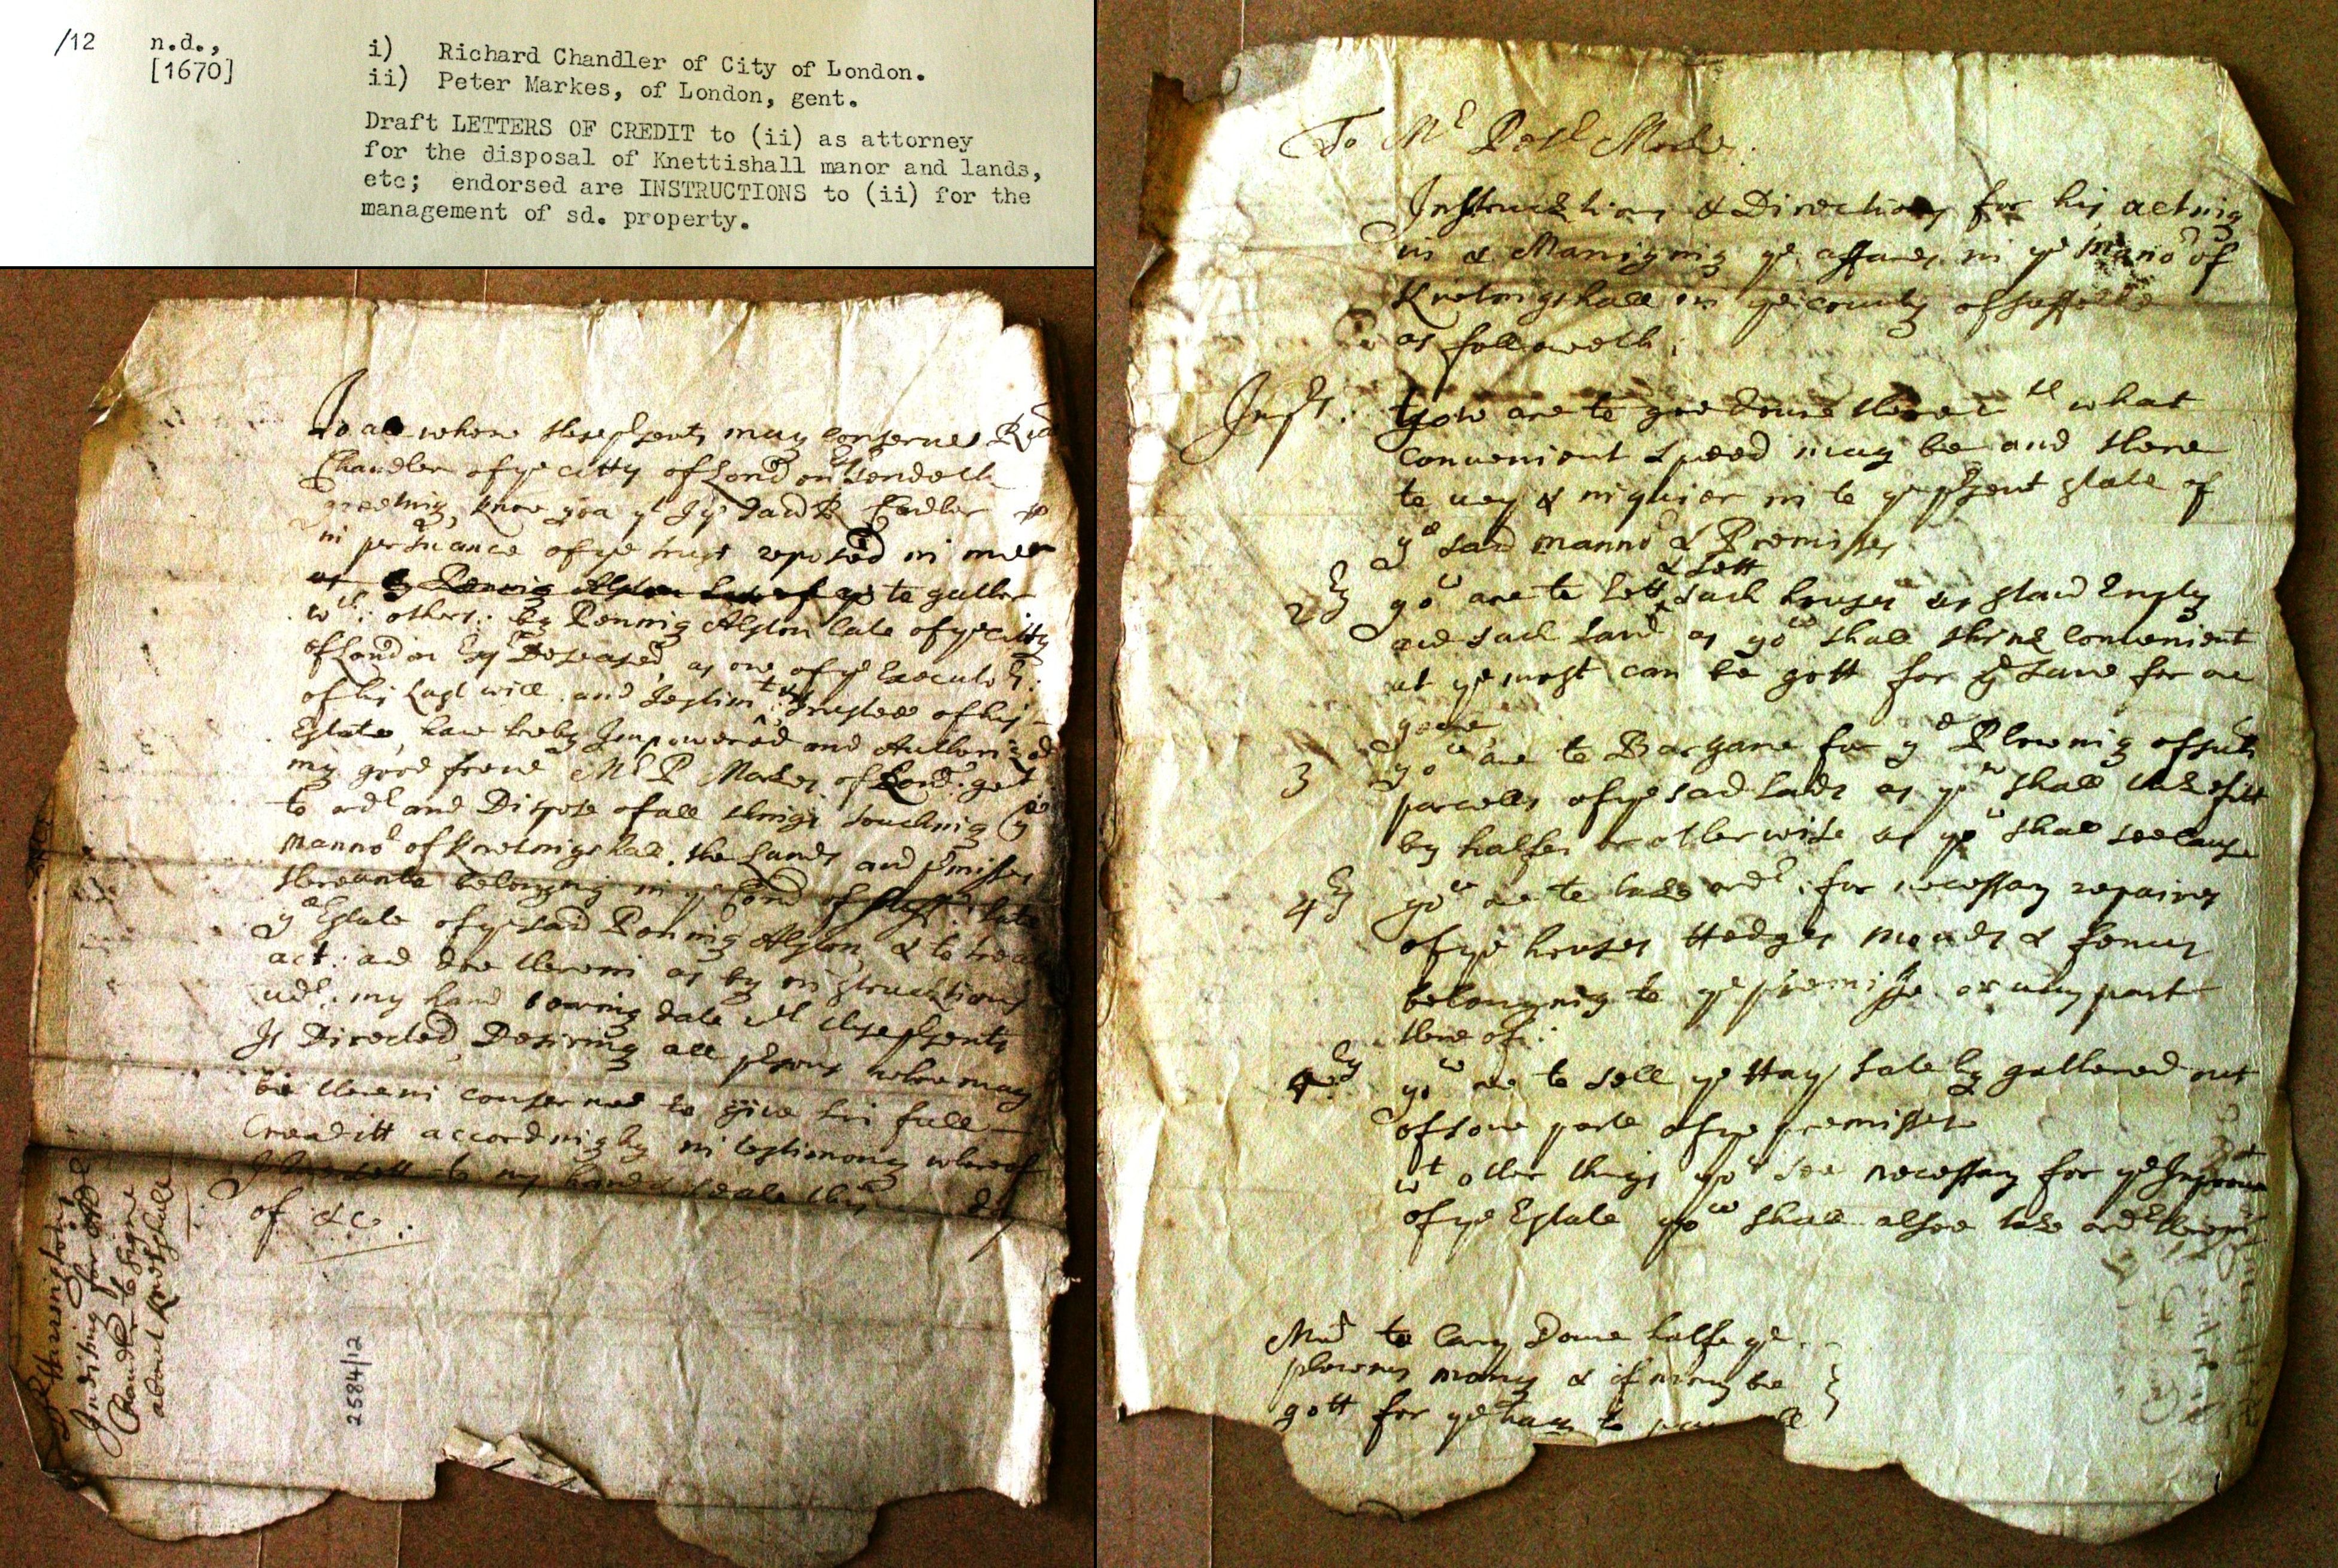 /12 n.d., [1670]
i) Richard Chandler of City of London.
ii) Peter Markes, of London, gent.
Draft LETTERS OF CREDIT to (ii) as attorney
for the disposal of Knettishall manor and lands,
etc; endorsed are INSTRUCTIONS to (ii) for the
management of sd. property.
To all whome these psents may conserne Ric
Chandler of ye citty of London sendeth
greeting, know you yt I ye said R Candler
in persuance of ye trust reposed in mee
as by Pennig Alston Late of ye to gather
wth: others: by Pennig Alston late of ye citty
of London Esq Deseased, as one of ye Executors:
of his Last will and Testimt & trustee of his
Estate, have herby Impowered and Authorized
my good frend Mr P Markes of Lond: get
to ordr and Dispose of all things touching ye
Mannor of Knetingshall, the Lands and pmisses
thereunto belonging in ye Cond of Suff: late
ye Estate of ye said Pennig Alston, & to treat
act: and doe therein as by instructions
udr: my hand bearing date wth these psents
Is Directed, Desiring all psons whom may
be therein conserned to give him full
Creaditt accordingly in testimony whereof
I have sett to my hand & seale this day
of &c:
Inditing for
Chandler to signe
about Knetshale
2584/12
To Mr Petr Marke:
Instructions & Directions for his acting
in & Manniging ye affaires in ye Mano of
Knetingshall in ye county of Suffolke
as followeth:
Inpr: Yow are to goe downe there wth what
convenient speed may be and there
to vey & inquier in to ye psent state of
ye said manno & Premisses
& sett
2ly yow are to lett such houses as stand Empty
and such Land as yow shall think convenient
at ye most can be gott for ye same for one
yeare
3 yow are to Bargane for ye Plowing of such
parcells of ye said lands as yow shall think fitt
by halfes or otherwise as yow shall see cause
4ly yow are to take ordr: for necessary repaires
of ye houses Hedges Mounds & fences
belonging to ye premisse or any part
there of:
yow are to sell ye Hay lately gathered out
of some parte of ye premisses
wt other things yow see necessary for ye Improvem
of ye Estate yow shall alsoe take ordr therein
Mnd to Cary Downe halfe ye
plowing mony & if mony be
gott for ye hay to